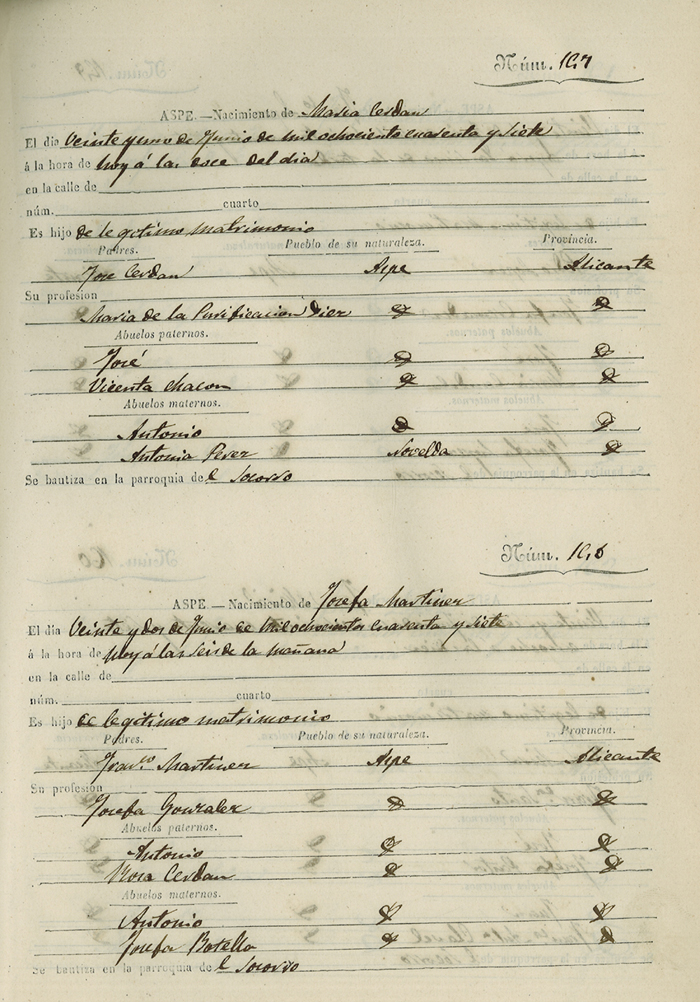 Núm. 167
ASPE.—Nacimiento de Maria Cerdan
El dia Veinte y uno de Junio de mil ochociento cuarenta y siete
á la hora de hoy á las doce del dia
en la calle de
núm. cuarto
Es hijo de legitimo matrimonio
Padres. Pueblo de su naturaleza. Provincia.
Jose Cerdan Aspe Alicante
Su profesión
Maria de la Purificacion Diez
Abuelos paternos.
José
Vicenta Chacon
Abuelos maternos.
Antonio
Antonia Perez Novelda
Se bautiza en la parroquia del Socorro
Núm. 168
ASPE.—Nacimiento de Josefa Martinez
El dia Veinte y dos de Junio de mil ochocientos cuarenta y siete
á la hora de hoy á las seis de la mañana
en la calle de
núm. cuarto
Es hijo de legitimo matrimonio
Padres. Pueblo de su naturaleza. Provincia.
Franco Martinez Aspe Alicante
Su profesión
Josefa Gonzalez
Abuelos paternos.
Antonio
Rosa Cerdan
Abuelos maternos.
Antonio
Josefa Botella
Se bautiza en la parroquia del Socorro